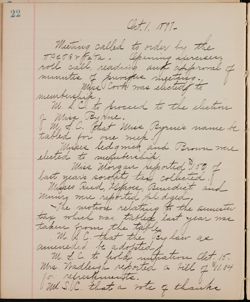 22
Oct. 1, 1897.
Meeting called to order by the
Opening exercises,
roll call, reading and approval of
minutes of previous meeting.
Miss Cook was elected to
membership.
M. S. C. to proceed to the election
of Miss Byrne.
M. S. C. that Miss Byrne's name be
tabled for one week.
Misses and Brown were
elected to membership.
Miss Morgan reported of
last years society tax collected.
Misses Reid, Benedict and
were reported pledged.
The motion relating to the
tax which was tabled last year was
taken from the table.
M. S. C. that the By-law as
amended be adopted.
M. S. C. to hold initiation Oct. 15.
Mrs. reported a bill of $11.04
for
M. S. C. that a vote of thanks